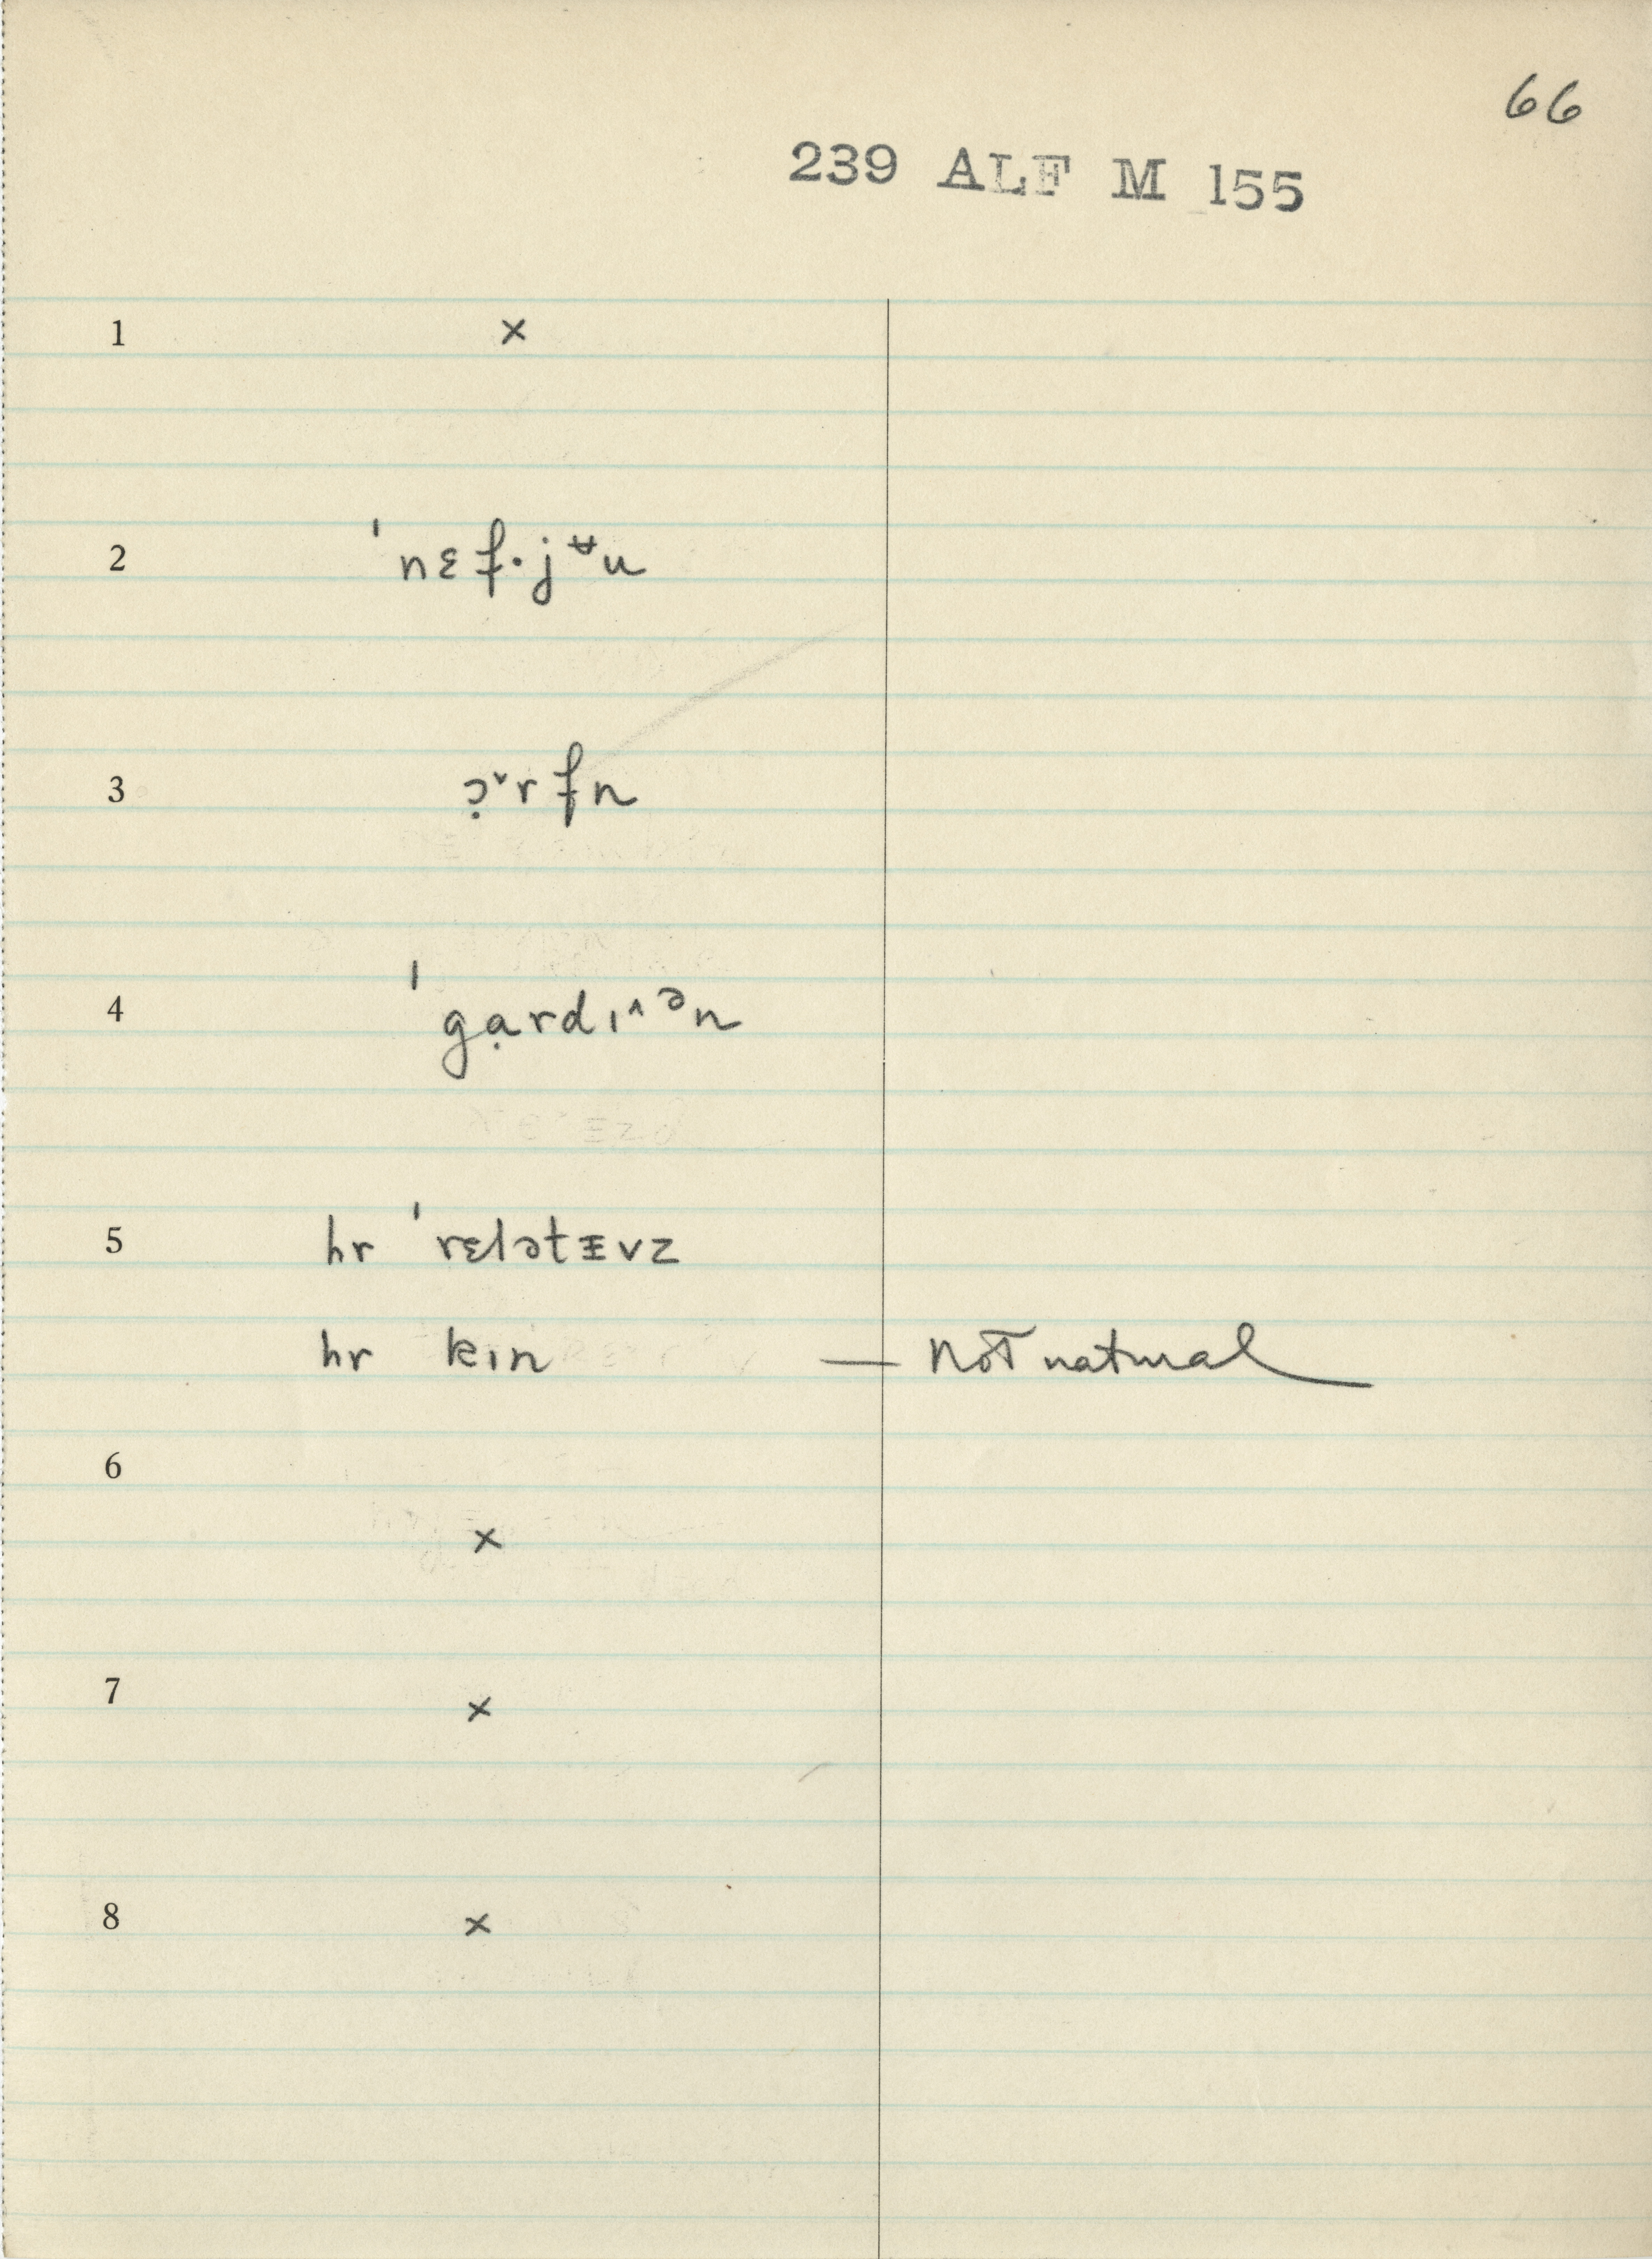 66
239 ALF M 155
1 ×
2 ˈnɛf·jᵾu
3 ɔ̣˅rfn
4 ˈgạrdɪ˄ᵊn
5 hr ˈrɛlətᵻvz
hr kɪn — Not natural
6
×
7 ×
8 ×